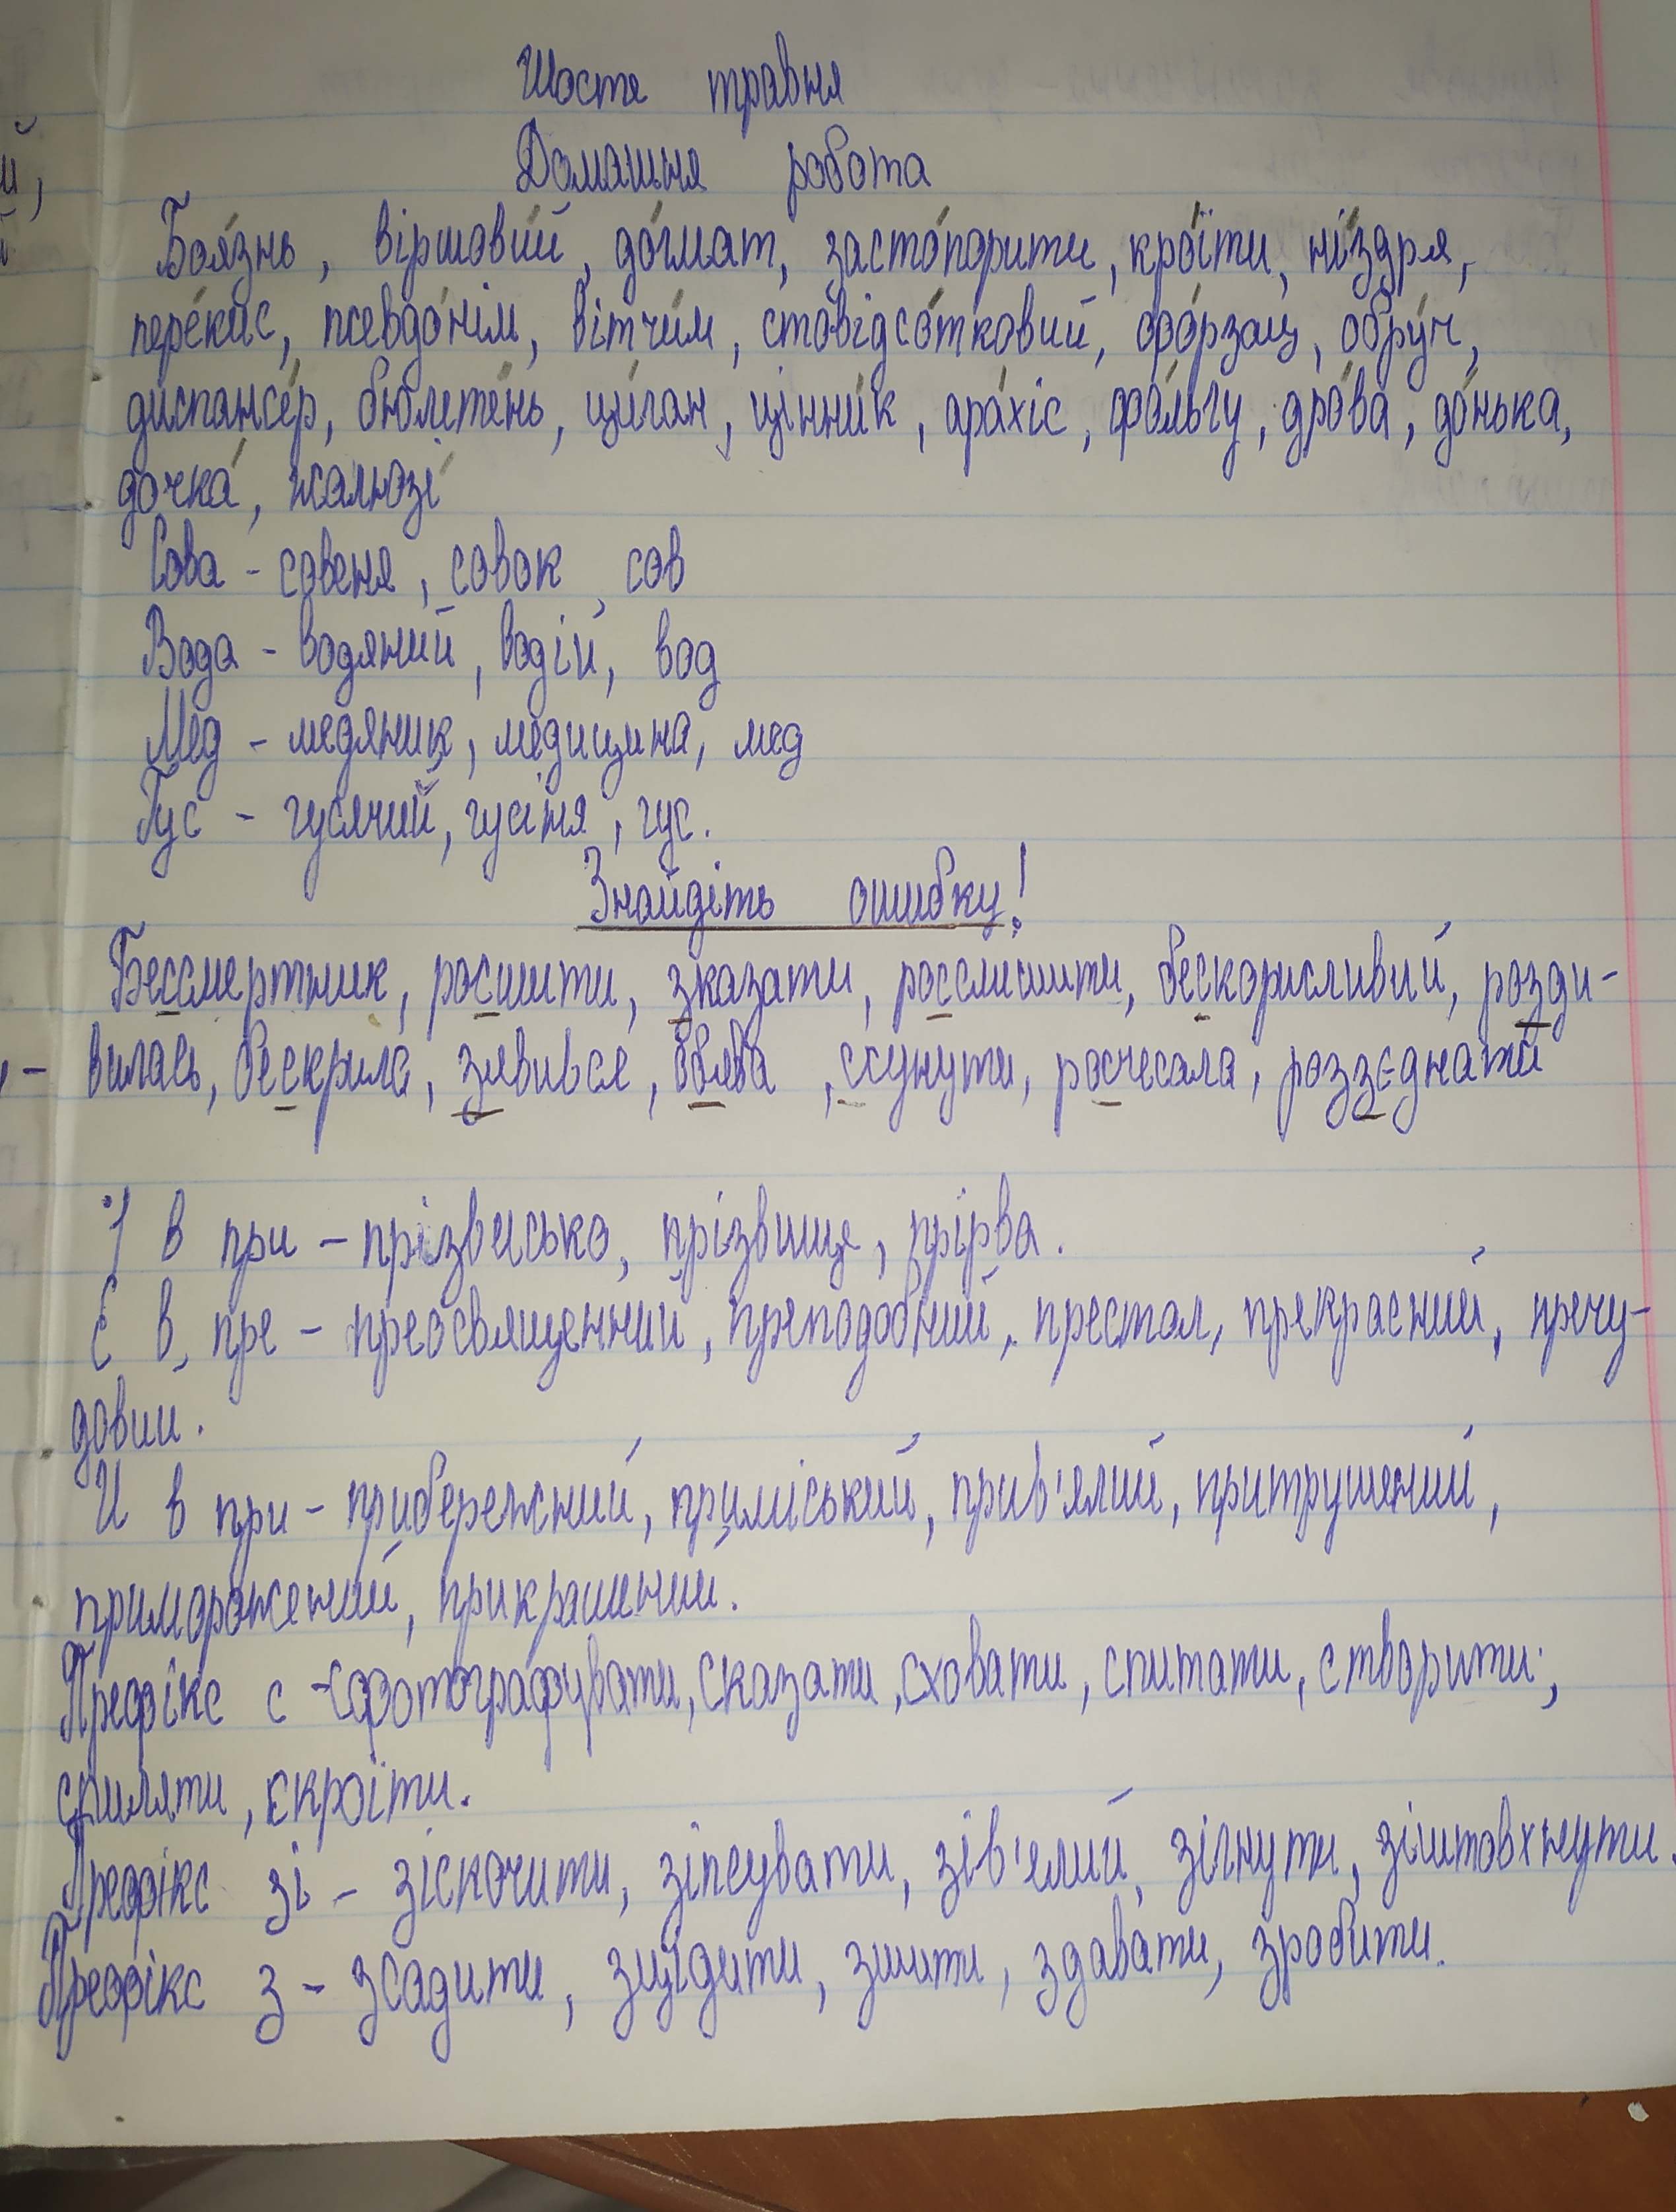 Шосте травня
Домашня робота
Боя́знь, віршови́й, до́гмат, засто́порити, крої́ти, ні́здря,
пере́кис, псевдо́нім, вітчи́м, стовідсо́тковий, фо́рзац, обру́ч,
диспансе́р, бюлете́нь, ци́ган, цінни́к, ара́хіс, фо́льгу, дро́ва, до́нька,
дочка́, жалюзі́
Сова - совеня, совок, сов
Вода - водяний, водій, вод
Мед - медяник, медицина, мед
Гус - гусячий, гусітя, гус.
Знайдіть ошибку!
Бессмертник, росшити, зказати, россмішити, бескорисливий, розди-
вилась, бескрила, зявився, обява, ссунути, росчесала, роззєднати
І в при - прізвисько, прізвище, прірва.
Є в пре - преосвященний, преподобний, престол, прекрасний, пречу-
довий.
И в при - прибережний, приміський, прив'ялий, притрушений,
приморожений, прикрашений.
Префікс с - сфотографувати, сказати, сховати, спитати, створити,
спиляти, скроїти.
Префікс зі - зіскочити, зіпсувати, зів'ялий, зігнути, зіштовхнути.
Префікс з - зсадити, зцідити, зшити, здавати, зробити.